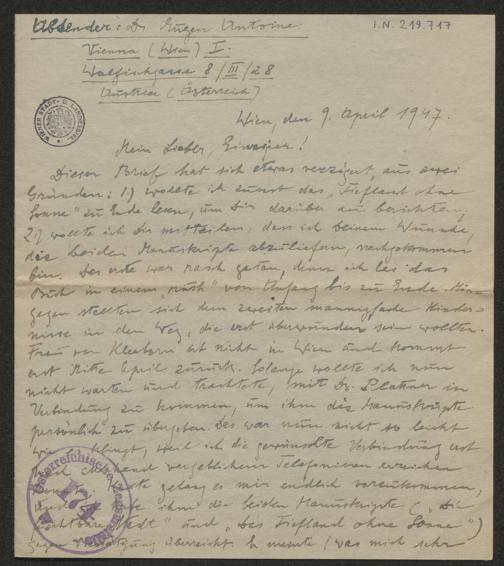 Absender: Dr. Eugen Antoine
I.N. 219.717
Vienna (Wien) I.
Walfischgasse 8/III/28
Austria (Österreich)
WIENER STADT- U. LANDESBIBL.
Wien, den 9. April 1947.
Mein Lieber, Einziger!
Dieser Brief hat sich etwas verzögert, aus zwei
Gründen: 1.) wollte ich zuerst das "Tiefland ohne
Sonne" zu Ende lesen, um Dir darüber zu berichten,
2.) wollte ich Dir mitteilen, dass ich Deinem Wunsche,
die beiden Manuskripte abzuliefern, nachgekommen
bin. Das erste war rasch getan, denn ich las das
Buch in einem "rush" von Anfang bis zu Ende. Hin-
gegen stellten sich dem zweiten mannigfache Hinder-
nisse in den Weg, die erst überwunden sein wollten.
Frau von ist nicht in Wien und kommt
erst Mitte April zurück. Solange wollte ich nun
nicht warten und trachtete, mit Dr. Plattner in
Verbindung zu kommen, um ihm die Manuskripte
persönlich zu übergeben. Das war nun nicht so leicht
wie es klingt, weil ich die gewünschte Verbindung erst
nach vergeblichem Telefonieren erreichen
gelang es mir endlich vorzukommen,
und ihm die beiden Manuskripte ("Die
" und "Das Tiefland ohne Sonne")
gegen überreicht. Er meinte (was mich sehr
Österreichische Zensurstelle
174